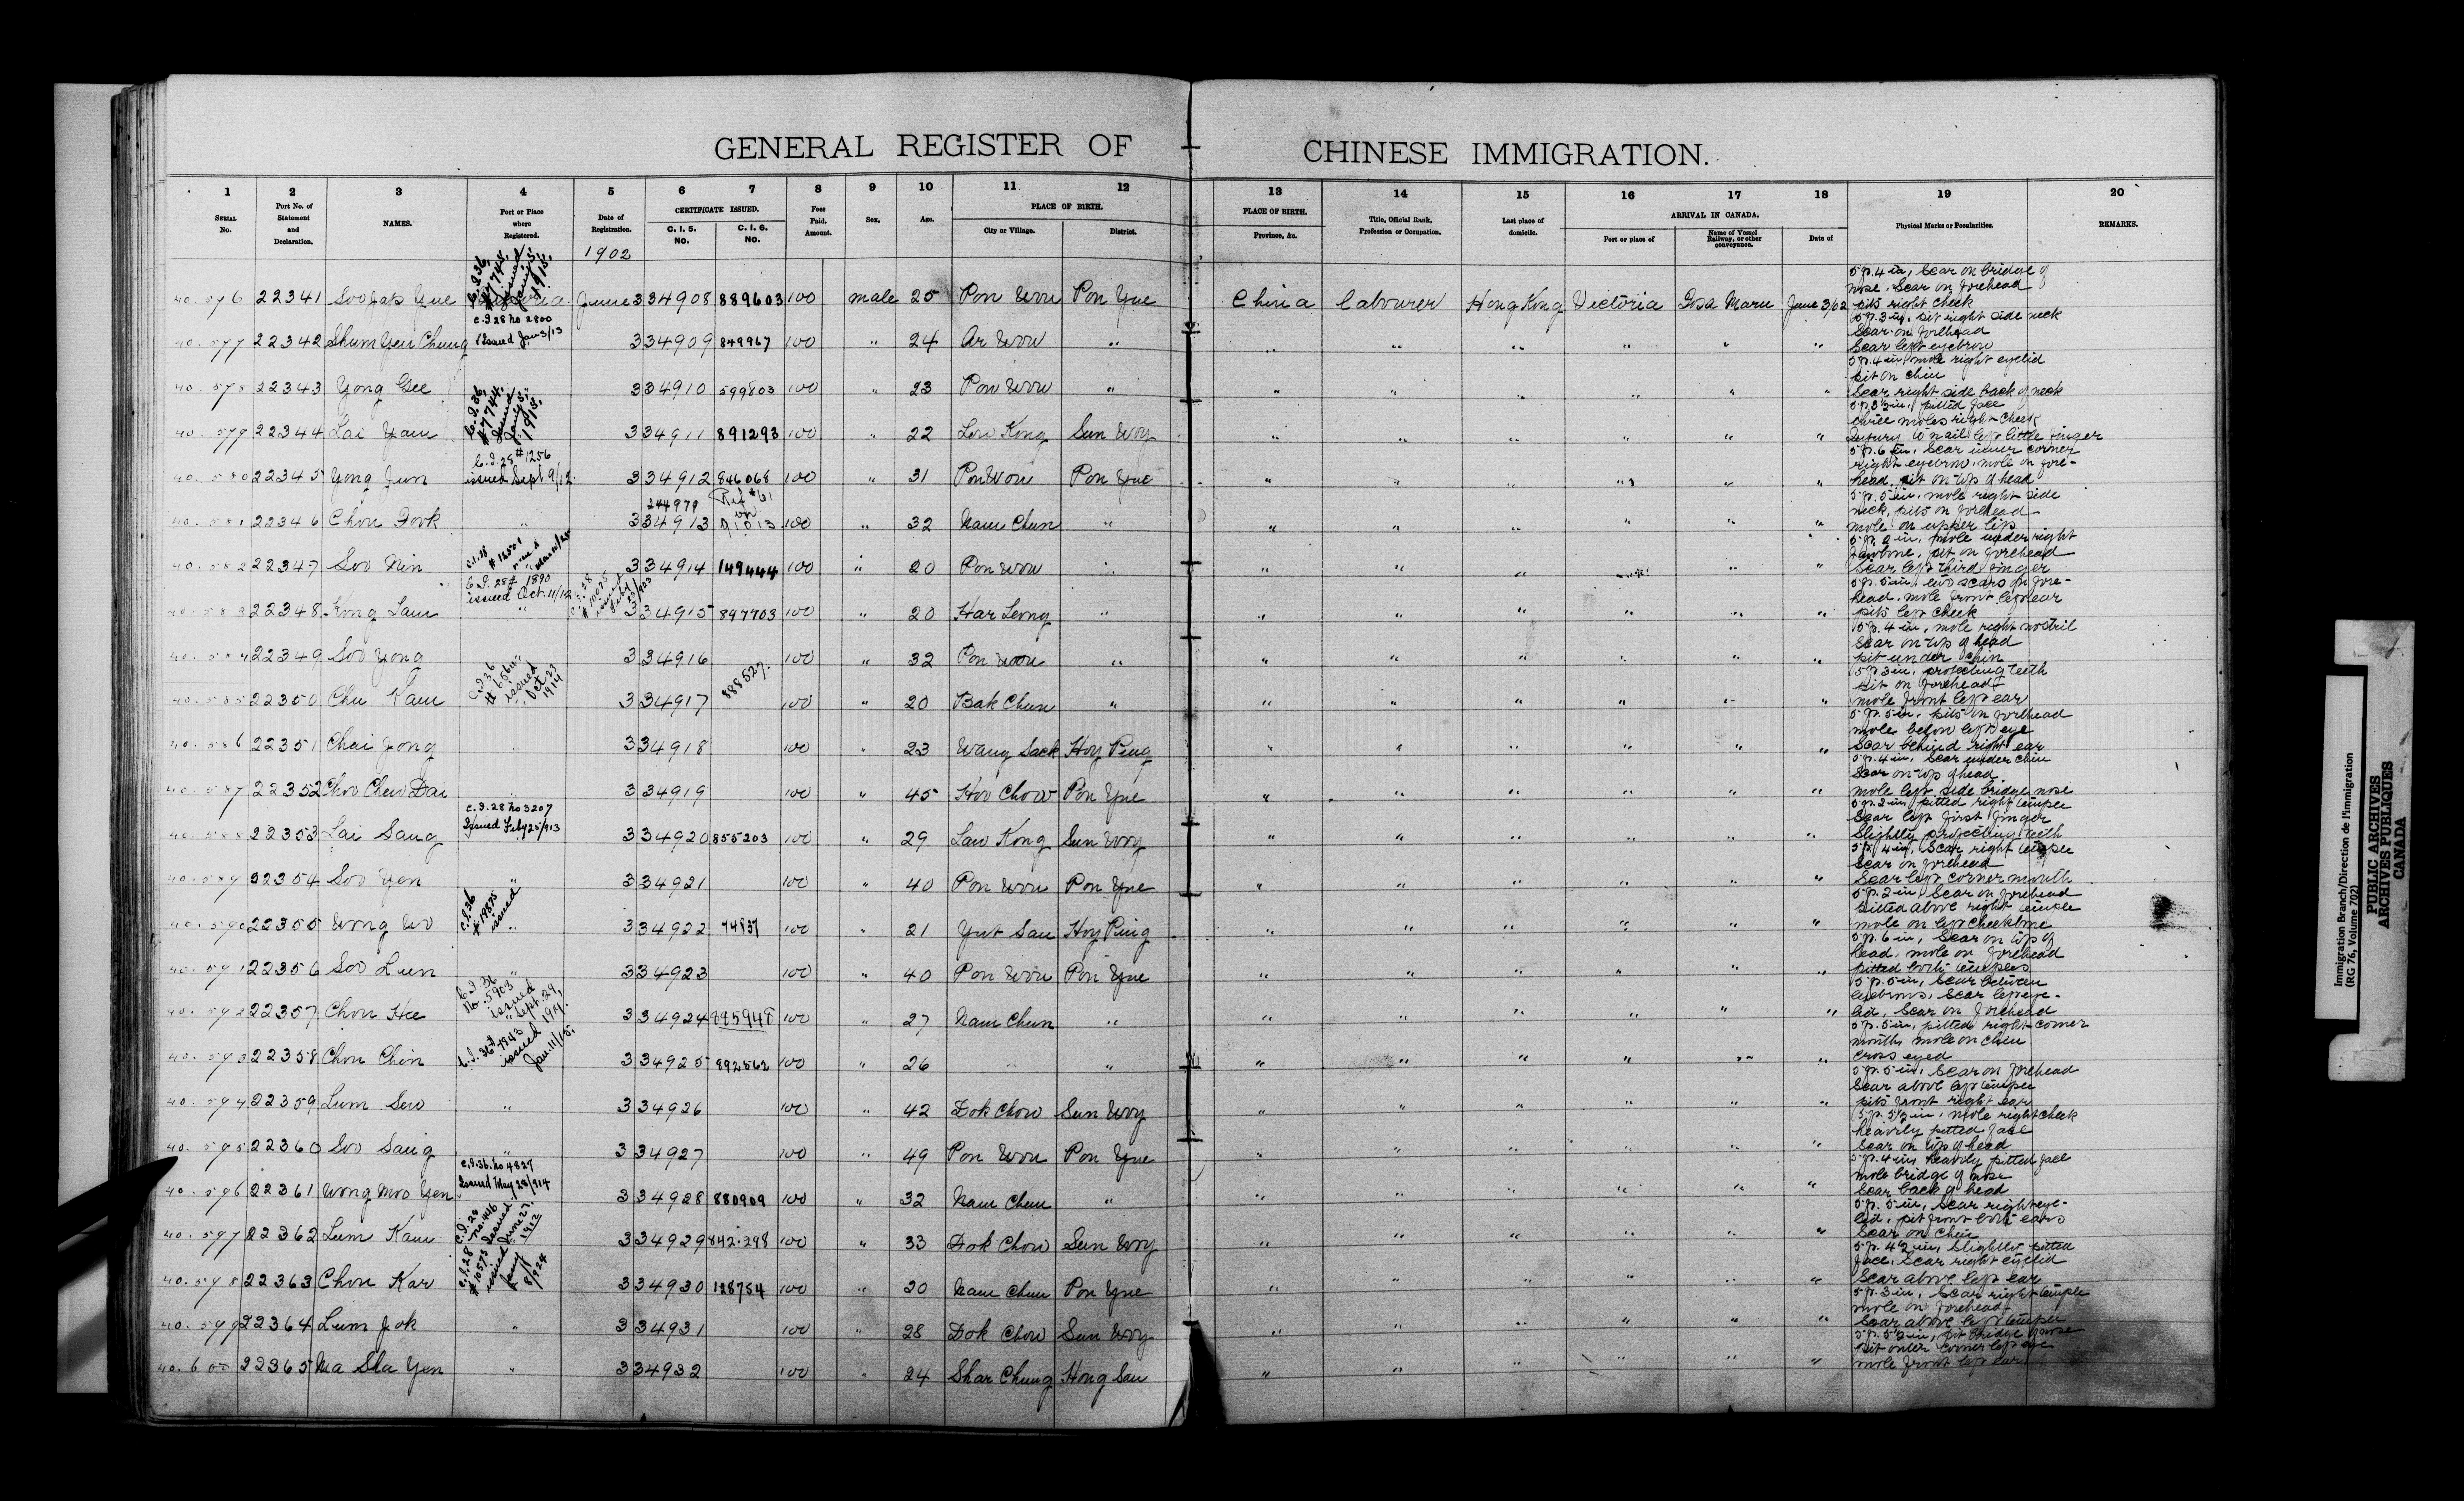 GENERAL REGISTER OF CHINESE IMMIGRATION.
1 2 3 4 5 6 7 8 9 10 11 12 13 14 15 16 17 18 19 20
SERIAL No.
Port No. of Statement and Declaration.
NAMES.
Port or Place where Registered.
Date of Registration.
CERTIFICATE ISSUED.
C. I. 5. NO.
C. I. 6. NO.
Fees Paid. Amount.
Sex.
Age.
PLACE OF BIRTH.
City or Village.
District.
PLACE OF BIRTH.
Province, &c.
Title, Official Rank, Profession or Occupation.
Last place of domicile.
ARRIVAL IN CANADA.
Port or place of
Name of Vessel Railway, or other conveyance.
Date of
Physical Marks or Peculiarities.
REMARKS.
1902
C.I.36, #7745, issued Jany 5, 1915.
5 ft. 4 in, Scar on bridge of
nose, Scar on forehead
40.576 22341 Soo Jap Yue Victoria June 3 34908 889603 100 male 25 Pon Woo Pon Yue China Labourer Hong Kong Victoria Tosa Maru June 3/02 pits right cheek
C.I.28 No 2800
Issued Jan 3/13
5 ft. 3 in, pit right side neck
Scar on forehead
40.577 22342 Shum Yen Chung 3 34909 849967 100 " 24 Ar Woo " " " " " " " Scar left eyebrow
5 ft. 4 in, mole right eyelid
pit on chin
40.578 22343 Yong Gee 3 34910 599803 100 " 23 Pon Woo " " " " " " " Scar right side back of neck
C.I.36, #7744, issued Jany 5, 1915.
5 ft. 3½ in, pitted face
three moles right cheek
40.579 22344 Lai Yam 3 34911 891293 100 " 22 Low Kong Sun Woy " " " " " " Injury to nail left little finger
C.I.28 #1256
issued Sept 9/12
5 ft. 6 in, Scar inner corner
right eyebrow, mole on fore-
40.580 22345 Yong Jun 3 34912 846068 100 " 31 Pon Woo Pon Yue " " " " " " head, pit on top of head
244979 Ref #61
5 ft. 5 in, mole right side
neck, pits on forehead
40.581 22346 Chou Fook " 3 34913 100 " 32 Nam Chun " " " " " " " mole on upper lip
mole under right
jawbone, pit on forehead
40.582 22347 Soo Nin " 3 34914 149444 100 " 20 Pon Woo " " " " " " " Scar left third finger
C.I.28 # 1890
issued Oct. 11/12
5 ft. 5 in, two scars on fore-
head, mole front left ear
40.583 22348 Kong Lam " 3 34915 897703 100 " 20 Har Leong " " " " " " " pits left cheek
5 ft. 4 in, mole right nostril
Scar on top of head
40.584 22349 Soo Yong " 3 34916 100 " 32 Pon Woo " " " " " " " pit under chin
C.I.36 # 6561 issued Oct 23 1914
5 ft. 3 in, projecting teeth
pit on forehead
40.585 22350 Chu Kam " 3 34917 888527. 100 " 20 Bak Chun " " " " " " " mole front left ear
5 ft. 5 in, pits on forehead
mole below left eye
40.586 22351 Chai Jong " 3 34918 100 " 23 Wang Sack Hoy Ping " " " " " " Scar behind right ear
5 ft. 4 in, Scar under chin
Scar on top of head
40.587 22352 Choo Chew Dai " 3 34919 100 " 45 Hoo Chow Pon Yue " " " " " " mole left side bridge nose
C.I.28 No 3207
Issued Feby 25/913
5 ft. 2 in, pitted right temple
Scar left first finger
40.588 22353 Lai Sang 3 34920 855203 100 " 29 Law Kong Sun Woy " " " " " " Slightly projecting teeth
5 ft. 4 in, Scar right temple
Scar on forehead
40.589 22354 Soo Yen " 3 34921 100 " 40 Pon Woo Pon Yue " " " " " " Scar left corner mouth
C.I.36 #19875 issued
5 ft. 2 in, Scar on forehead
pitted above right temple
40.590 22355 Wong Wo " 3 34922 100 " 21 Yut San Hoy Ping " " " " " " mole on left cheekbone
5 ft. 6 in, Scar on top of
head, mole on forehead
40.591 22356 Soo Lun " 3 34923 100 " 40 Pon Woo Pon Yue " " " " " " pitted both temples
C.I.36 No. 5903 issued Sept. 24, 1914.
5 ft. 5 in, Scar between
eyebrows, Scar left eye-
40.592 22357 Chou Hee " 3 34924 885948 100 " 27 Nam Chun " " " " " " " lid, Scar on forehead
C.I.36 # 7843 issued Jan. 11/15.
5 ft. 5 in, pitted right corner
mouth, mole on chin
40.593 22358 Chou Chin 3 34925 892562 100 " 26 " " " " " " " " cross eyed
5 ft. 5 in, Scar on forehead
Scar above left temple
40.594 22359 Lum Sew " 3 34926 100 " 42 Dok Chow Sun Woy " " " " " " pits front right ear
5 ft. 5½ in, mole right cheek
heavily pitted face
40.595 22360 Soo Sang " 3 34927 100 " 49 Pon Woo Pon Yue " " " " " " Scar on top of head
C.I.36. No 4827
Issued May 22/914
5 ft. 4 in, heavily pitted face
mole bridge of nose
40.596 22361 Wong Moo Yen 3 34928 880909 100 " 32 Nam Chun " " " " " " " Scar back of head
C.I.28 No. 446 Issued June 27, 1912
5 ft. 5 in, Scar right eye-
lid, pit front both ears
40.597 22362 Lum Kam 3 34929 842298 100 " 33 Dok Chow Sun Woy " " " " " " Scar on chin
C.I.28 #10573 issued Jany 8/924
5 ft. 4½ in, Slightly pitted
face, Scar right eyelid
40.598 22363 Chou Kar 3 34930 128754 100 " 20 Nam Chun Pon Yue " " " " " " Scar above left ear
5 ft. 3 in, Scar right temple
mole on forehead
40.599 22364 Lum Jok " 3 34931 100 " 28 Dok Chow Sun Woy " " " " " " Scar above left temple
5 ft. 5½ in, pit bridge of nose
pit outer corner left eye
40.600 22365 Ma Sha Yen " 3 34932 100 " 24 Shar Chung Hong San " " " " " " mole front left ear
Immigration Branch/Direction de l'immigration
(RG 76, Volume 702)
PUBLIC ARCHIVES
ARCHIVES PUBLIQUES
CANADA